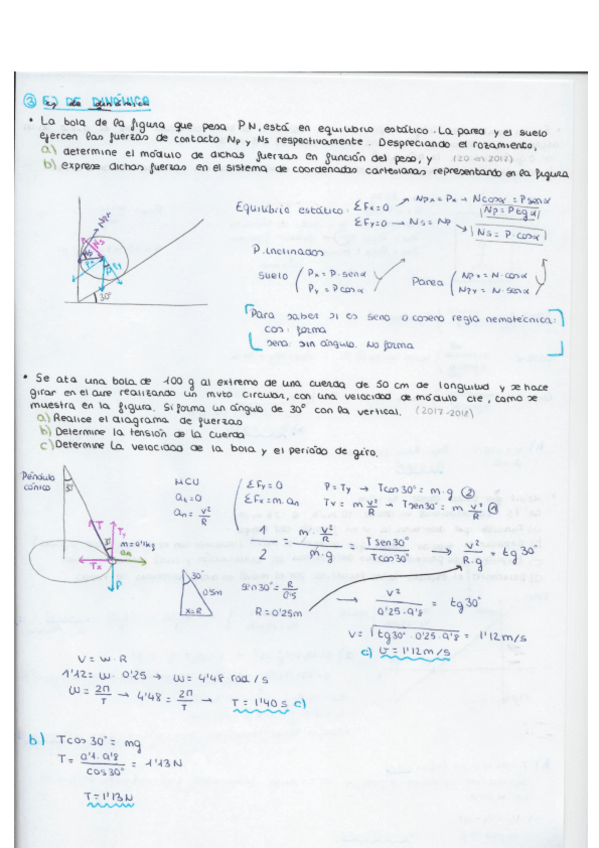 ③ Ej DE DINÁMICA
• La bola de la figura que pesa P.N, está en equilibrio estático. La pared y el suelo
ejercen las fuerzas de contacto Np y Ns respectivamente. Despreciando el rozamiento,
a) determine el módulo de dichas fuerzas en función del peso, y (20 en 2017)
b) exprese dichas fuerzas en el sistema de coordenadas cartesianas representando en la figura
Equilibrio estático: ΣFx=0 → Npx = Px → N cosα = P senα
Np = P tgα
ΣFy=0 → Ns = Np
Ns = P. cosα
P. inclinados
suelo Px = P. senα
Py = P cosα
Pared Npx = N. cosα
Npy = N. senα
30°
Para saber si es seno o coseno regla nemotécnica:
cos: forma
seno: sin ángulo. No forma
• Se ata una bola de 100 g al extremo de una cuerda de 50 cm de longitud y se hace
girar en el aire realizando un mvto circular, con una velocidad de módulo cte, como se
muestra en la figura. Si forma un ángulo de 30° con la vertical. (2017-2018)
a) Realice el diagrama de fuerzas
b) Determine la tensión de la cuerda
c) Determine la velocidad de la bola y el periodo de giro.
Péndulo
cónico
30°
T
Ty
m=0'1kg
an
Tx
P
MCU
at=0
an = v²/R
ΣFy=0 P=Ty → Tcos30° = m.g ②
ΣFx=m.an Tx = m v²/R → Tsen30° = m v²/R ①
1/2 = m. v²/R / m.g = T sen30° / T cos30° → v²/R.g = tg 30°
30°
0.5m
x=R
sen30° = R/0'5
R = 0'25m
→ v²/0'25.9'8 = tg30°
v = √tg30°.0'25.9'8 = 1'12 m/s
c) v = 1'12 m/s
v = w.R
1'12 = w.0'25 → w = 4'48 rad/s
w = 2π/T → 4'48 = 2π/T → T = 1'40 s c)
b) Tcos30° = mg
T = 0'1.9'8/cos30° = 1'13N
T = 1'13N